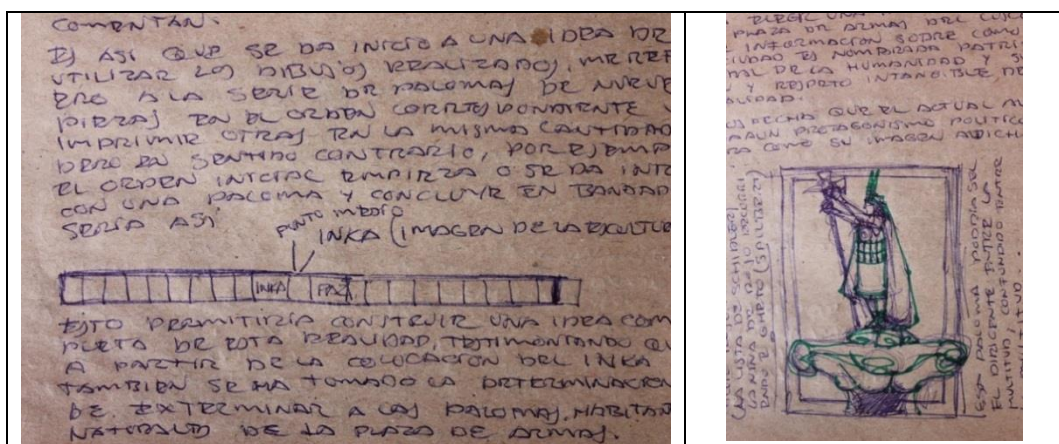 COMENTÁN.
ES ASI QUE SE DA INICIO A UNA IDEA DE
UTILIZAR LOS DIBUJOS REALIZADOS, ME REF
ERO A LA SERIE DE PALOMAS DE NUEVE
PIEZAS EN EL ORDEN CORRESPONDIENTE
IMPRIMIR OTRAS EN LA MISMA CANTIDAD
PERO EN SENTIDO CONTRARIO, POR EJEMP
EL ORDEN INICIAL EMPIEZA O SE DA INI
CON UNA PALOMA Y CONCLUYE EN BANDAD
SERÍA ASÍ
PUNTO MEDIO
INKA (IMAGEN DE LA ESCULTUR
INKA
ESTO PERMITIRÍA CONSTRUIR UNA IDEA COM
PLETA DE ESTA REALIDAD, TESTIMONIANDO QU
A PARTIR DE LA COLOCACIÓN DEL INKA
TAMBIEN SE HA TOMADO LA DETERMINACION
DE EXTERMINAR A LAS PALOMAS, HABITAN
NATURALES DE LA PLAZA DE ARMAS.
ELEGIR UNA
PLAZA DE ARMAS DEL CUSC
INFORMACIÓN SOBRE COMO
CIUDAD ES NOMBRADA PATRI
DE LA HUMANIDAD Y SU
Y RESPETO INTANGIBLE DE
FECHA QUE EL ACTUAL
PROTAGONISMO POLITICO
COMO SU IMAGEN A DICHA
LA LISTA DE SCHINDLER
LA NIÑA DE ROJO
GHETO
ESA PALOMA PODRÍA SER
EL DIRIGENTE ENTRE LA
MULTITUD / CONFUNDIDO ENTRE
MULTITUD